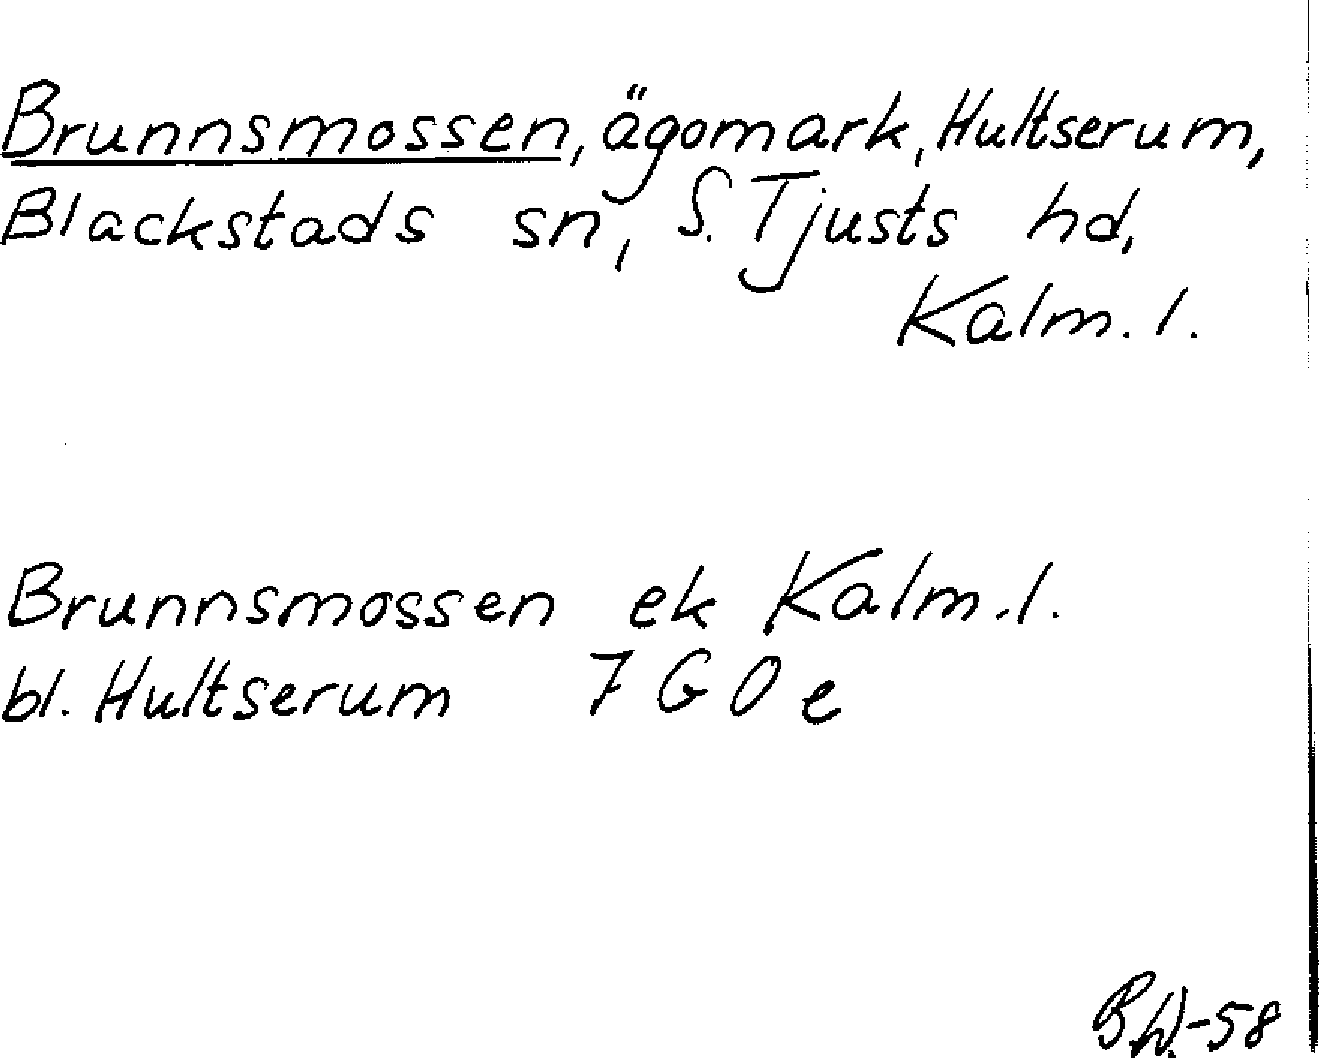 Brunnsmossen, ägomark, Hultserum,
Blackstads sn, S. Tjusts hd,
Kalm. l.
Brunnsmossen ek Kalm. l.
bl. Hultserum 7 G O e
-58